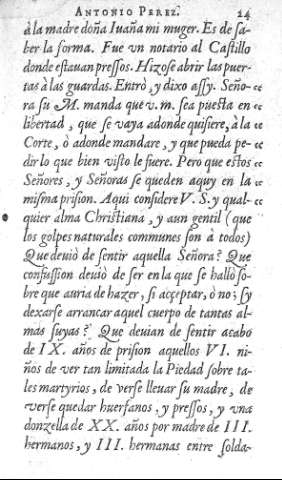 ANTONIO PEREZ. 24
à la madre doña Iuaña mi muger. Es de sa-
ber la forma. Fue vn notario al Castillo
donde estauan pressos. Hizose abrir las puer-
tas à las guardas. Entrò, y dixo assy. Seño- „
ra su M. manda que v. m. sea puesta en „
libertad, que se vaya adonde quisiere, à la „
Corte, ò adonde mandare, y que pueda pe- „
dir lo que bien visto le fuere. Pero que estos „
Señores, y Señoras se queden aquy en la „
misma prision. Aqui considere V. S. y qual-
quier alma Christiana, y aun gentil (que
los golpes naturales communes son à todos)
Que deuiò de sentir aquella Señora? Que
confussion deuiò de ser en la que se hallò so-
bre que auria de hazer, si acçeptar, ò no; sy
dexarse arrancar aquel cuerpo de tantas al-
mas suyas? Que deuian de sentir acabo
de IX. años de prision aquellos VI. ni-
ños de ver tan limitada la Piedad sobre ta-
les martyrios, de verse lleuar su madre, de
verse quedar huerfanos, y pressos, y vna
donzella de XX. años por madre de III.
hermanos, y III. hermanas entre solda-